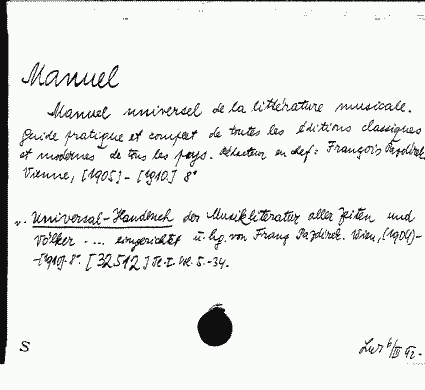 Manuel
Manuel universel de la littérature musicale.
Guide pratique et complet de toutes les éditions classiques
et modernes de tous les pays. Rédacteur en chef: François Pazdírek
Vienne, [1905]-[1910] 8°
Universal-Handbuch der Musikliteratur aller Zeiten und
Völker. ... eingerichtet u. hg. von Franz Pazdírek. Wien, (1904)-
-[1910]. 8°. [32512] S.-34.
S